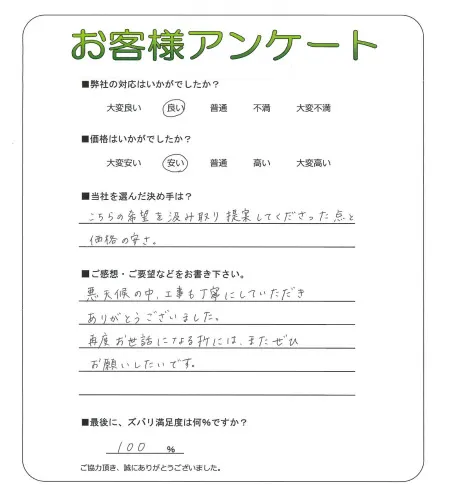 お客様アンケート
■弊社の対応はいかがでしたか?
大変良い 良い 普通 不満 大変不満
■価格はいかがでしたか?
大変安い 安い 普通 高い 大変高い
■当社を選んだ決め手は?
こちらの希望を汲み取り提案してくださった点と
価格の安さ。
■ご感想・ご要望などをお書き下さい。
悪天候の中、工事も丁寧にしていただき
ありがとうございました。
再度お世話になる折には、またぜひ
お願いしたいです。
■最後に、ズバリ満足度は何%ですか?
100 %
ご協力頂き、誠にありがとうございました。